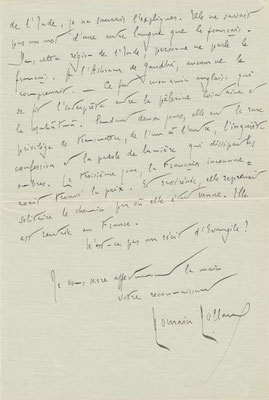 de l'Inde, je ne saurais l'expliquer. Elle ne savait
pas un mot d'une autre langue que le français.
Dans cette région de l'Inde, personne ne parle le
français. A l'Ashram de Gandhi, aucun ne le
comprenait. – Ce fut mon amie anglaise qui
se fit l'interprète entre la pèlerine
le Mahâtmâ. Pendant deux jours, elle eut le rare
privilège de transmettre, de l'un à l'autre, l'inquiète
confession et la parole de lumière qui dissipait les
ombres. Le troisième jour, la Française inconnue
avait trouvé la paix. Et rassérénée, elle reprenait
solitaire le chemin par où elle était venue. Elle
est rentrée en France.
N'est-ce pas un récit d'Evangile?
Je vous serre affectueusement la main
votre reconnaissant
Romain Rolland